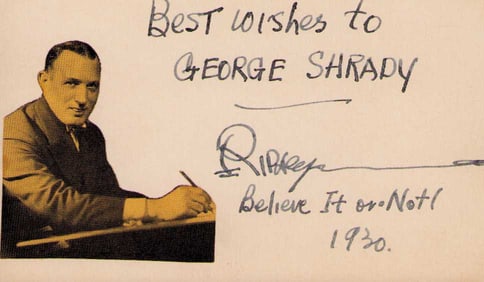 BEST WISHES to
GEORGE SHRADY
RIPLEY
Believe It or Not!
1930.